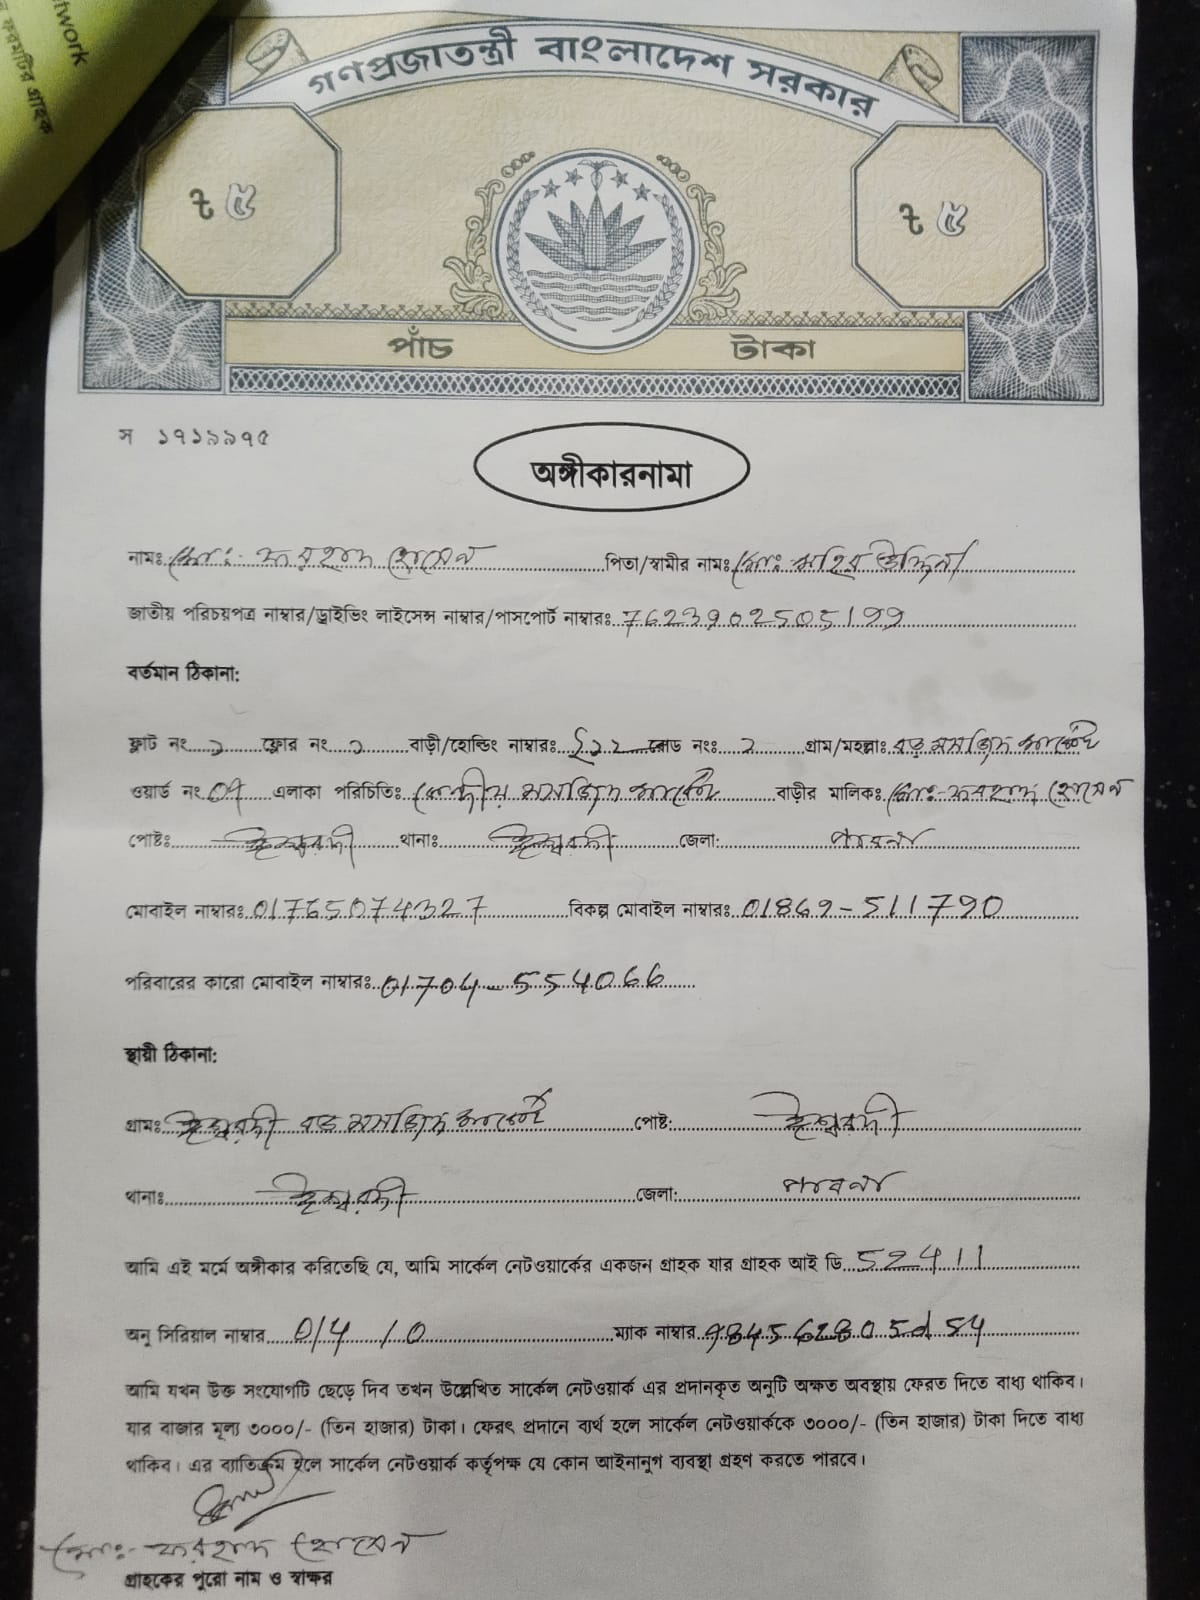 twork
করমটির গ্রাহক
গণপ্রজাতন্ত্রী বাংলাদেশ সরকার
৳ ৫ ৳ ৫
পাঁচ টাকা
স ১৭১৯৯৭৫
অঙ্গীকারনামা
নামঃ মোঃ- ফরহাদ হোসেন পিতা/স্বামীর নামঃ মোঃ মহির উদ্দিন
জাতীয় পরিচয়পত্র নাম্বার/ড্রাইভিং লাইসেন্স নাম্বার/পাসপোর্ট নাম্বারঃ 7623902505199
বর্তমান ঠিকানা:
ফ্লাট নং ১ ফ্লোর নং ১ বাড়ী/হোল্ডিং নাম্বারঃ রোড নংঃ ২ গ্রাম/মহল্লাঃ বড় মসজিদ মার্কেট
ওয়ার্ড নং 07 এলাকা পরিচিতিঃ কেন্দ্রীয় মসজিদ মার্কেট বাড়ীর মালিকঃ মোঃ-ফরহাদ হোসেন
পোষ্টঃ ঈশ্বরদী থানাঃ ঈশ্বরদী জেলা: পাবনা
মোবাইল নাম্বারঃ 01765074327 বিকল্প মোবাইল নাম্বারঃ 01869-511790
পরিবারের কারো মোবাইল নাম্বারঃ 01704-554066
স্থায়ী ঠিকানা:
গ্রামঃ ঈশ্বরদী বড় মসজিদ মার্কেট পোষ্ট: ঈশ্বরদী
থানাঃ ঈশ্বরদী জেলা: পাবনা
আমি এই মর্মে অঙ্গীকার করিতেছি যে, আমি সার্কেল নেটওয়ার্কের একজন গ্রাহক যার গ্রাহক আই ডি 52411
অনু সিরিয়াল নাম্বার 0/4 /0 ম্যাক নাম্বার 984562805d54
আমি যখন উক্ত সংযোগটি ছেড়ে দিব তখন উল্লেখিত সার্কেল নেটওয়ার্ক এর প্রদানকৃত অনুটি অক্ষত অবস্থায় ফেরত দিতে বাধ্য থাকিব।
যার বাজার মূল্য ৩০০০/- (তিন হাজার) টাকা। ফেরৎ প্রদানে ব্যর্থ হলে সার্কেল নেটওয়ার্ককে ৩০০০/- (তিন হাজার) টাকা দিতে বাধ্য
থাকিব। এর ব্যাতিক্রম হলে সার্কেল নেটওয়ার্ক কর্তৃপক্ষ যে কোন আইনানুগ ব্যবস্থা গ্রহণ করতে পারবে।
মোঃ- ফরহাদ হোসেন
গ্রাহকের পুরো নাম ও স্বাক্ষর